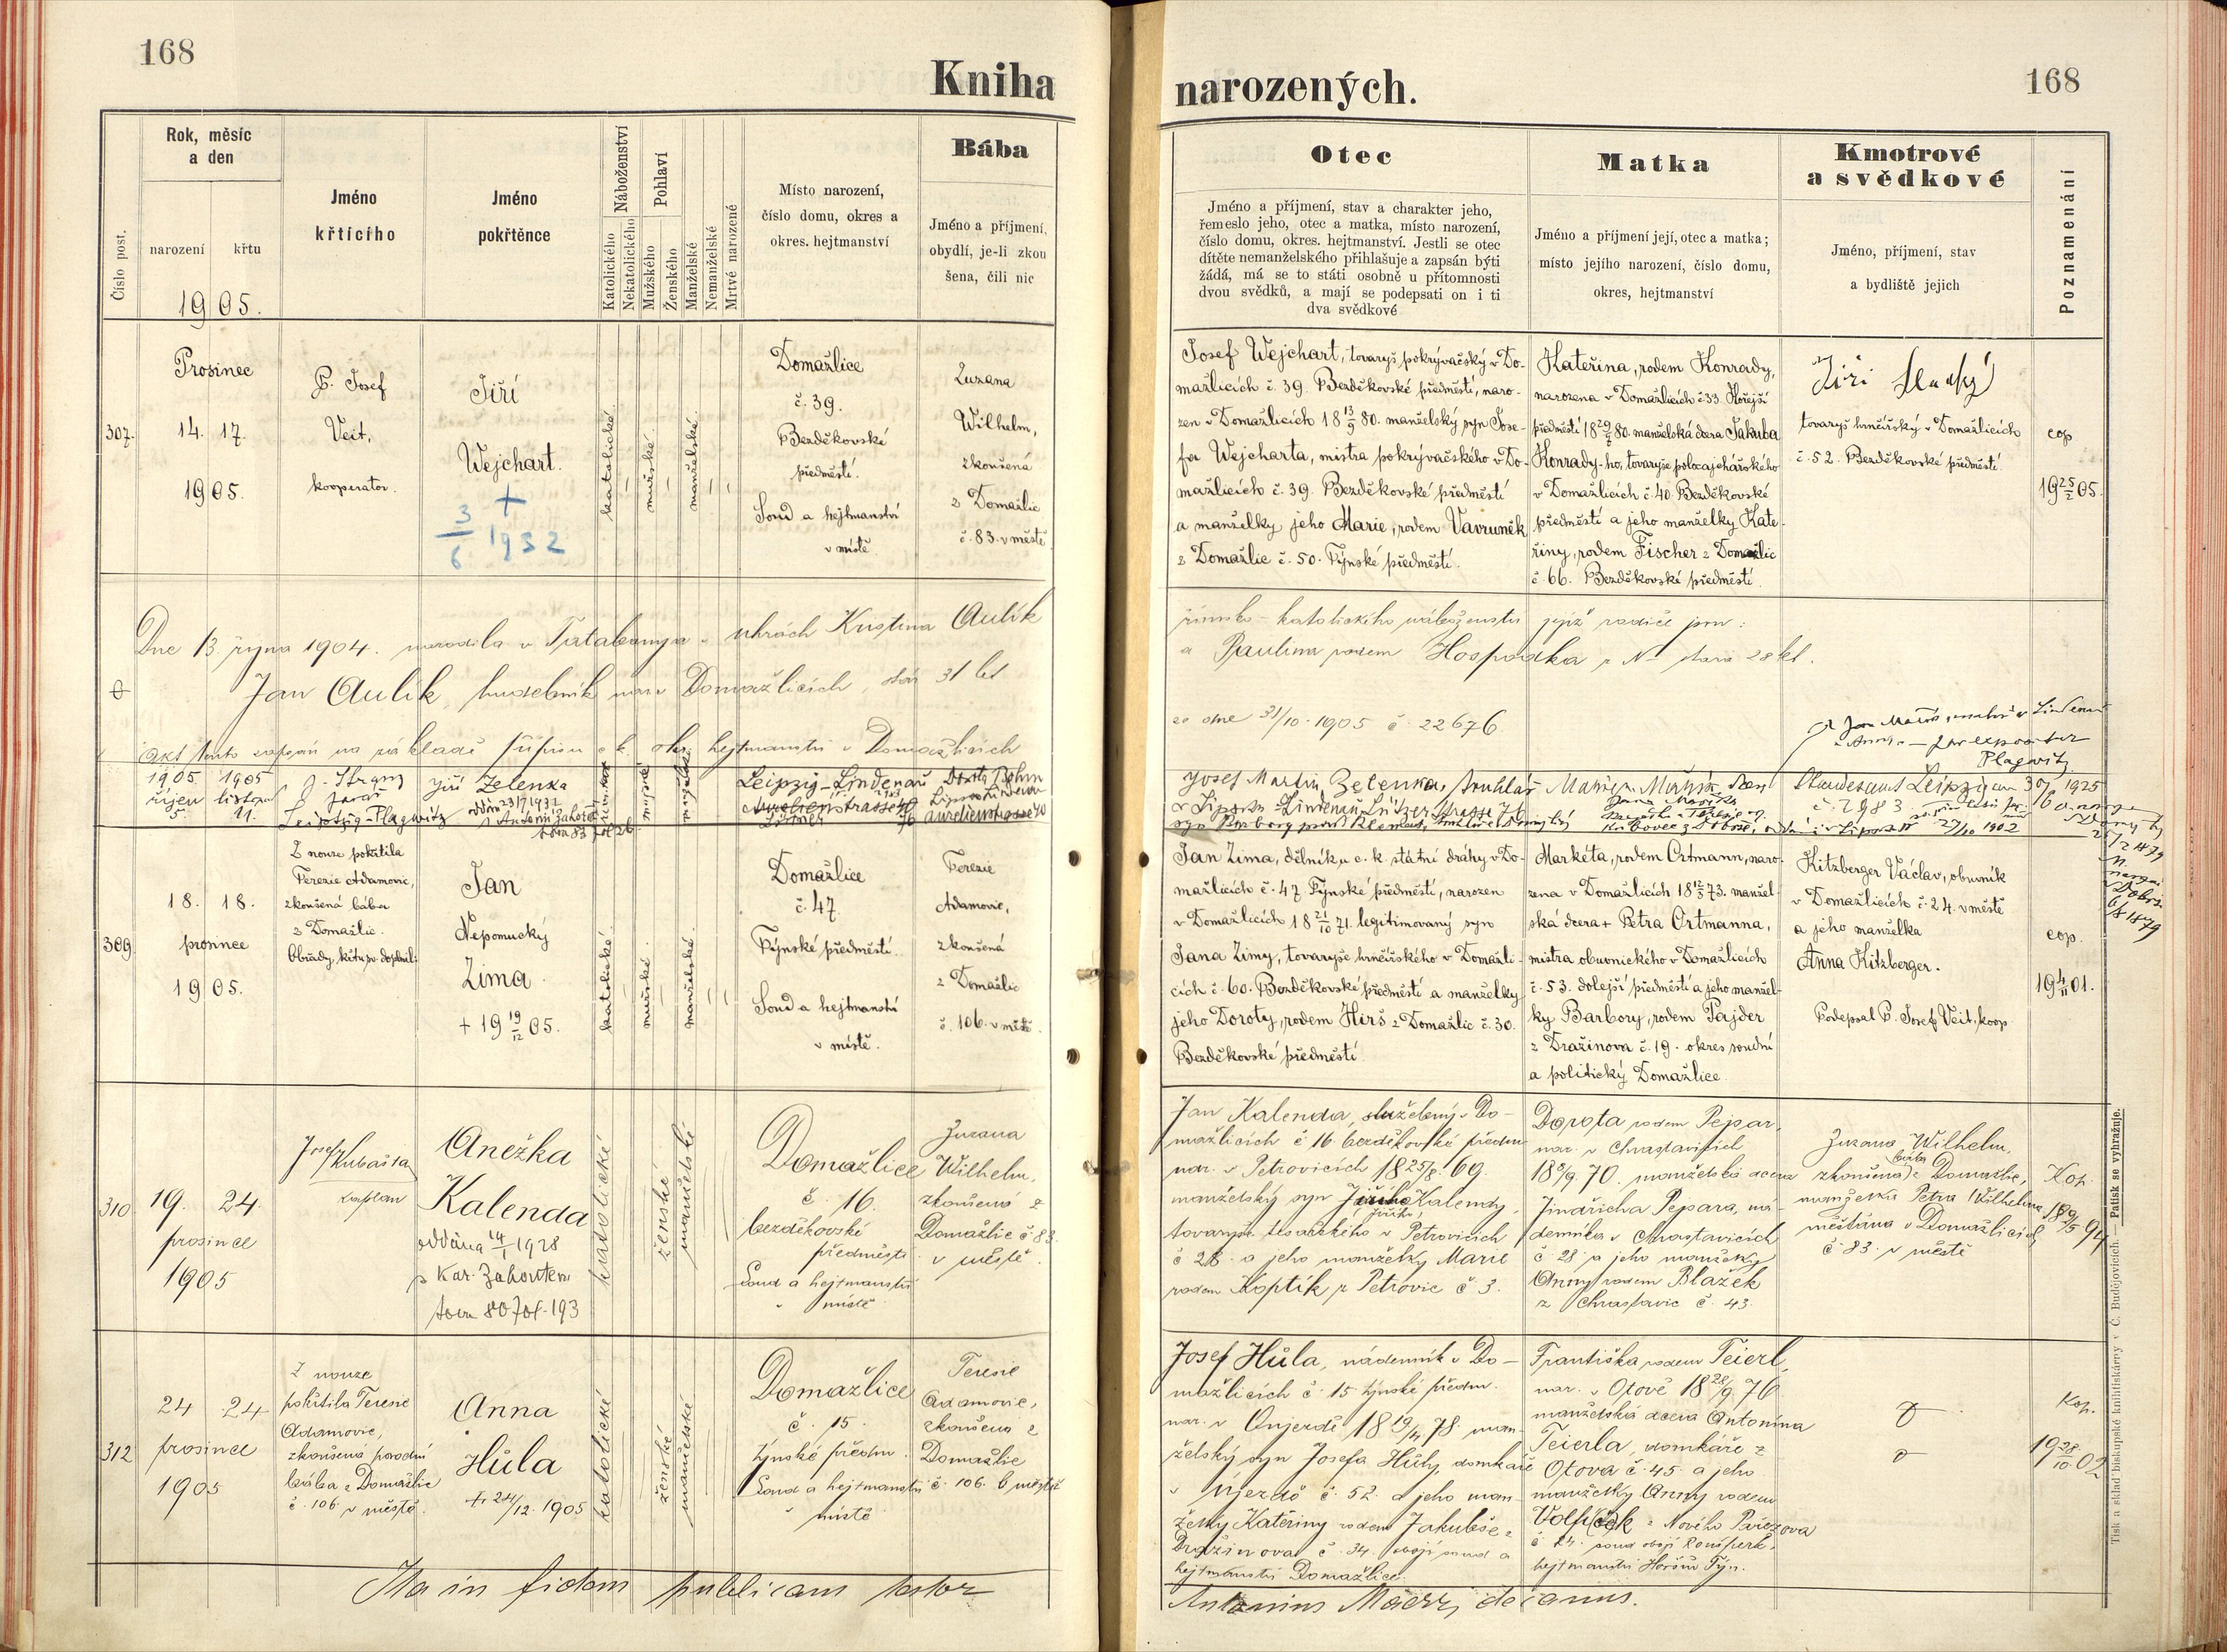 168
Kniha
narozených.
168
Číslo post.
Rok, měsíc
a den
narození
křtu
1905.
Jméno
křtícího
Jméno
pokřtěnce
Náboženství
Katolického
Nekatolického
Pohlaví
Mužského
Ženského
Manželské
Nemanželské
Mrtvé narozené
Místo narození,
číslo domu, okres a
okres. hejtmanství
Bába
Jméno a příjmení,
obydlí, je-li zkou
šena, čili nic
Otec
Jméno a příjmení, stav a charakter jeho,
řemeslo jeho, otec a matka, místo narození,
číslo domu, okres. hejtmanství. Jestli se otec
dítěte nemanželského přihlašuje a zapsán býti
žádá, má se to státi osobně u přítomnosti
dvou svědků, a mají se podepsati on i ti
dva svědkové
Matka
Jméno a příjmení její, otec a matka;
místo jejího narození, číslo domu,
okres, hejtmanství
Kmotrové
a svědkové
Jméno, příjmení, stav
a bydliště jejich
Poznamenání
307.
Prosinec
14. 17.
1905.
P. Josef
Veit,
kooperator.
Jiří
Wejchart.
+
3/6 1932
katolické
mužské
manželské
Domažlice
č. 39.
Bezděkovské
předměstí.
Soud a hejtmanství
v místě.
Zuzana
Wilhelm,
zkoušená
z Domažlic
č. 83. v městě
Josef Wejchart, tovaryš pokrývačský v Do-
mažlicích č. 39. Bezděkovské předměstí, naro-
zen v Domažlicích 18 13/9 80. manželský syn Jose-
fa Wejcharta, mistra pokrývačského v Do-
mažlicích č. 39. Bezděkovské předměstí
a manželky jeho Marie, rodem Vavruněk
z Domažlic č. 50. Týnské předměstí.
Kateřina, rodem Konrady,
narozena v Domažlicích č. 33. Hořejší
předměstí 18 80. manželská dcera Jakuba
Konrady-ho, tovaryše
v Domažlicích č. 40. Bezděkovské
předměstí a jeho manželky Kate-
řiny, rodem Fischer z Domažlic
č. 66. Bezděkovské předměstí.
Jiří
tovaryš hrnčířský v Domažlicích
č. 52. Bezděkovské předměstí.
cop
19 25/2 05.
Dne 13. října 1904. narodila v Tatabanya v uhrách Kristina Aulík
římsko-katolického náboženství jejíž rodiče jsou:
Jan Aulík, hudebník nar. v Domažlicích, stár 31 let
a Paulina rodem Hospodka z N stara 28 let.
Akt tento zapsán na základě přípisu c. k. okr. hejtmanství v Domažlicích
ze dne 31/10. 1905 č. 22676
1905 1905
říjen listopad
5. 11.
Leipzig-Plagwitz
Jiří Zelenka
Leipzig-Lindenau
Aurelienstrasse 40
Josef Martin Zelenka,
Standesamt Leipzig
č. 2983
27/10 1902
Plagwitz
309.
18. 18.
prosince
1905.
Z nouze pokřtila
Terezie Adamovic,
zkoušená bába
z Domažlic.
Obřady křtu sv. doplnil:
Jan
Nepomucký
Zima
+ 19 19/12 05.
katolické
mužské
manželské
Domažlice
č. 47.
Týnské předměstí.
Soud a hejtmanství
v místě.
Terezie
Adamovic,
zkoušená
z Domažlic
č. 106. v městě.
Jan Zima, dělník u c. k. státní dráhy v Do-
mažlicích č. 47. Týnské předměstí, narozen
v Domažlicích 18 21/10 71. legitimovaný syn
Jana Zimy, tovaryše hrnčířského v Domažli-
cích č. 60. Bezděkovské předměstí a manželky
jeho Doroty, rodem Hirš z Domažlic č. 30.
Bezděkovské předměstí.
Markéta, rodem Ortmann, naro-
zena v Domažlicích 18 12/3 73. manžel-
ská dcera + Petra Ortmanna,
mistra obuvnického v Domažlicích
č. 53. dolejší předměstí a jeho manžel-
ky Barbory, rodem Pajder
z Dražinova č. 19. okres soudní
a politický Domažlice.
Kitzberger Václav, obuvník
v Domažlicích č. 24. v městě
a jeho manželka
Anna Kitzberger.
Podepsal P. Josef Veit, koop
cop.
19 4/11 01.
310
19. 24.
prosince
1905
Josef Kubašta
kaplan
Anežka
Kalenda
oddána 14/1 1928
s Kar. Zahouten
tom 80 fol. 193
katolické
ženské
manželské
Domažlice
č. 16.
bezděkovské
předměstí
Soud a hejtmanství
v místě
Zuzana
Wilhelm,
zkoušená z
Domažlic č. 83.
v městě.
Jan Kalenda, služebný v Do-
mažlicích č 16 bezděkovské předm
nar. v Petrovicích 18 25/8. 69.
manželský syn Jiřího Kalendy,
tovaryše tesařského v Petrovicích
č 28. a jeho manželky Marie
rodem Koptík z Petrovic č 3.
Dorota rodem Pejsar,
nar. v Chrastavicích
18 /9 70. manželská dcera
Jindřicha Pejsara, ná-
demíka v Chrastavicích
č 28 a jeho manželky
Anny rodem Blažek
z Chrastavic č. 43.
Zuzana Wilhelm,
zkoušená bába z Domažlic,
manželka Petra Wilhelma
měšťana v Domažlicích
č. 83. v městě
Kop.
18 9/5 94
312
24 24
prosince
1905
Z nouze
pokřtila Teresie
Adamovic,
zkoušená porodní
bába z Domažlic
č. 106 v městě.
Anna
Hůla
+ 24/12. 1905
katolické
ženské
manželské
Domažlice
č. 15.
týnské předm.
Soud a hejtmanství
v místě
Teresie
Adamovic,
zkoušená z
Domažlic
č. 106. v městě
Josef Hůla, nádenník v Do-
mažlicích č. 15 týnské předm.
nar. v Oujezdě 18 19/4 78 man-
želský syn Josefa Hůly, domkaře
v Újezdě č. 52. a jeho man-
želky Kateřiny rodem Jakubše z
Dražinova č. 34. obojí soud a
hejtmanství Domažlice.
Františka rodem Teierl,
nar. v Otově 18 28/9 76
manželská dcera Antonína
Teierla, domkáře z
Otova č. 45. a jeho
manželky Anny rodem
z Nového Pařezova
č. 24. soud obojí Ronšperk,
hejtmanství Horšův Týn.
Kop.
19 28/10 02
Ita in fidem publicam testor
Antonius decanus.
Tisk a sklad biskupské knihtiskárny v Č. Budějovicích. — Patisk se vyhražuje.